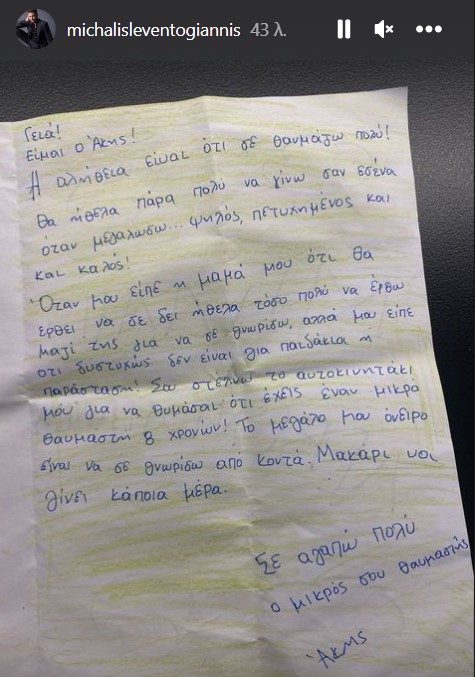 michalisleventogiannis 43 λ.
Γειά!
Είμαι ο Άκης!
Η αλήθεια είναι ότι σε θαυμάζω πολύ!
Θα ήθελα πάρα πολύ να γίνω σαν εσένα
όταν μεγαλώσω... ψηλός, πετυχημένος και
και καλός!
Όταν μου είπε η μαμά μου ότι θα
έρθει να σε δει ήθελα τόσο πολύ να έρθω
μαζί της για να σε γνωρίσω, αλλά μου είπε
οτι δυστυχώς δεν είναι για παιδάκια η
παράσταση! Σου στέλνω το αυτοκινητάκι
μου για να θυμάσαι ότι έχεις έναν μικρό
θαυμαστή 8 χρονών! Το μεγάλο μου όνειρο
είναι να σε γνωρίσω από κοντά. Μακάρι να
γίνει κάποια μέρα.
Σε αγαπώ πολύ
ο μικρός σου θαυμαστής
Άκης